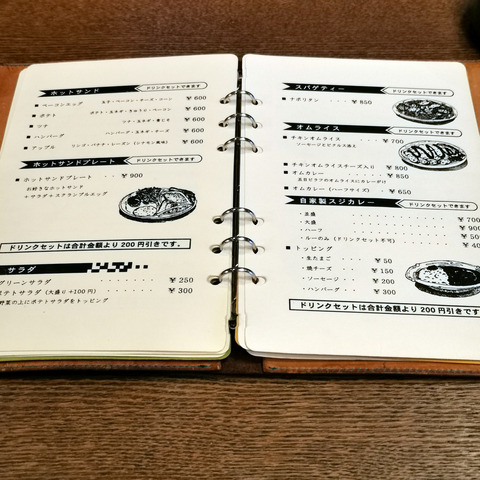 ホットサンド ドリンクセットできます
■ ベーコンエッグ 玉子・ベーコン・チーズ・コーン ¥600
■ ポテト ポテト・玉ネギ・きゅうり・ベーコン ¥600
■ ツナ ツナ・玉ネギ・青じそ ¥600
■ ハンバーグ ハンバーグ・玉ネギ・チーズ ¥600
■ アップル リンゴ・バナナ・レーズン(シナモン風味) ¥600
ホットサンドプレート ドリンクセットできます
■ ホットサンドプレート ¥900
お好きなホットサンド
+サラダ+スクランブルエッグ
ドリンクセットは合計金額より200円引きです。
サラダ
グリーンサラダ ¥250
ポテトサラダ(大盛り+100円) ¥300
野菜の上にポテトサラダをトッピング
スパゲティー ドリンクセットできます
■ ナポリタン ¥850
オムライス ドリンクセットできます
■ チキンオムライス ¥700
ソーセージとピクルス入り
■ チキンオムライスチーズ入り ¥800
■ オムカレー ¥850
玉目ピラフのオムライスにカレーがけ
■ オムカレー(ハーフサイズ) ¥650
自家製スジカレー ドリンクセットできます
・並盛 ¥700
・大盛 ¥900
・ハーフ ¥500
・ルーのみ(ドリンクセット不可) ¥400
■ トッピング
・生たまご ¥50
・焼チーズ ¥150
・ソーセージ ¥200
・ハンバーグ ¥300
ドリンクセットは合計金額より200円引きです。